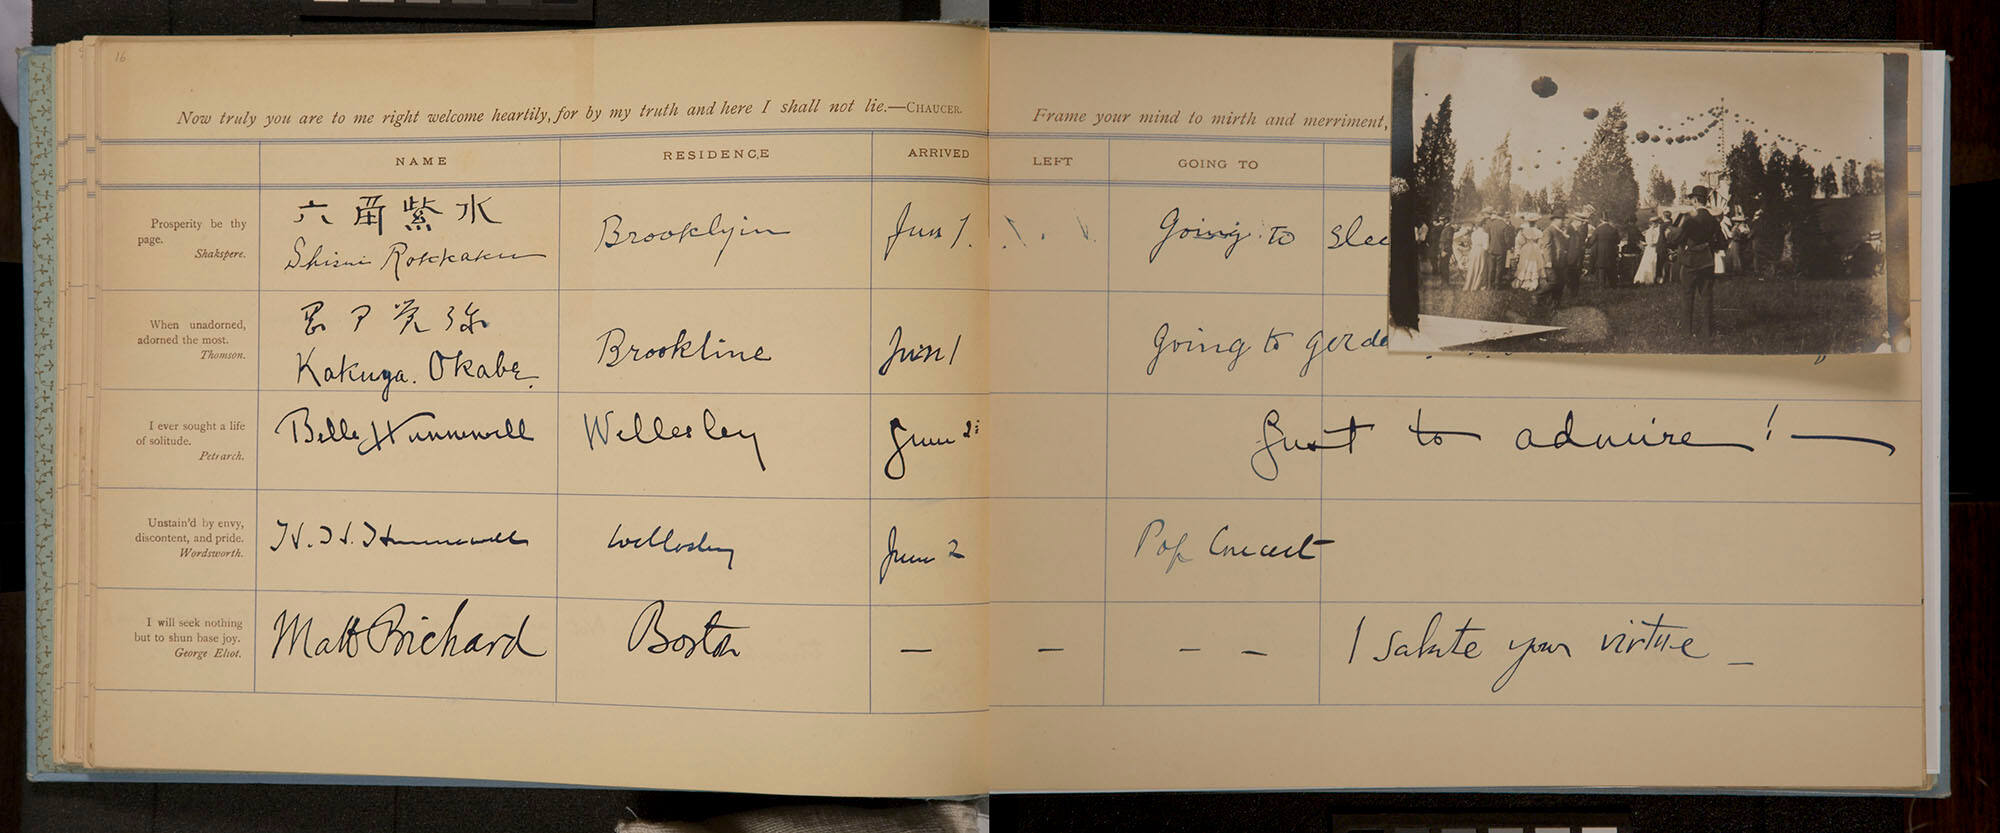 16
Now truly you are to me right welcome heartily, for by my truth and here I shall not lie.—CHAUCER.
Frame your mind to mirth and merriment,
NAME RESIDENCE ARRIVED LEFT GOING TO
Prosperity be thy
page.
Shakspere.
六角紫水
Shisui Rokkaku
Brooklyin
Jun 1.
Going to slee
When unadorned,
adorned the most.
Thomson.
岡部覚弥
Kakuya. Okabe.
Brookline
Jun 1
Going to garde
I ever sought a life
of solitude.
Petrarch.
Belle Hunnewell
Wellesley
June 2
Just to admire! —
Unstain'd by envy,
discontent, and pride.
Wordsworth.
H. H. Hunnewell
Wellesley
June 2
Pop Concert
I will seek nothing
but to shun base joy.
George Eliot.
Matt Prichard
Boston
— — — —
I salute your virtue —